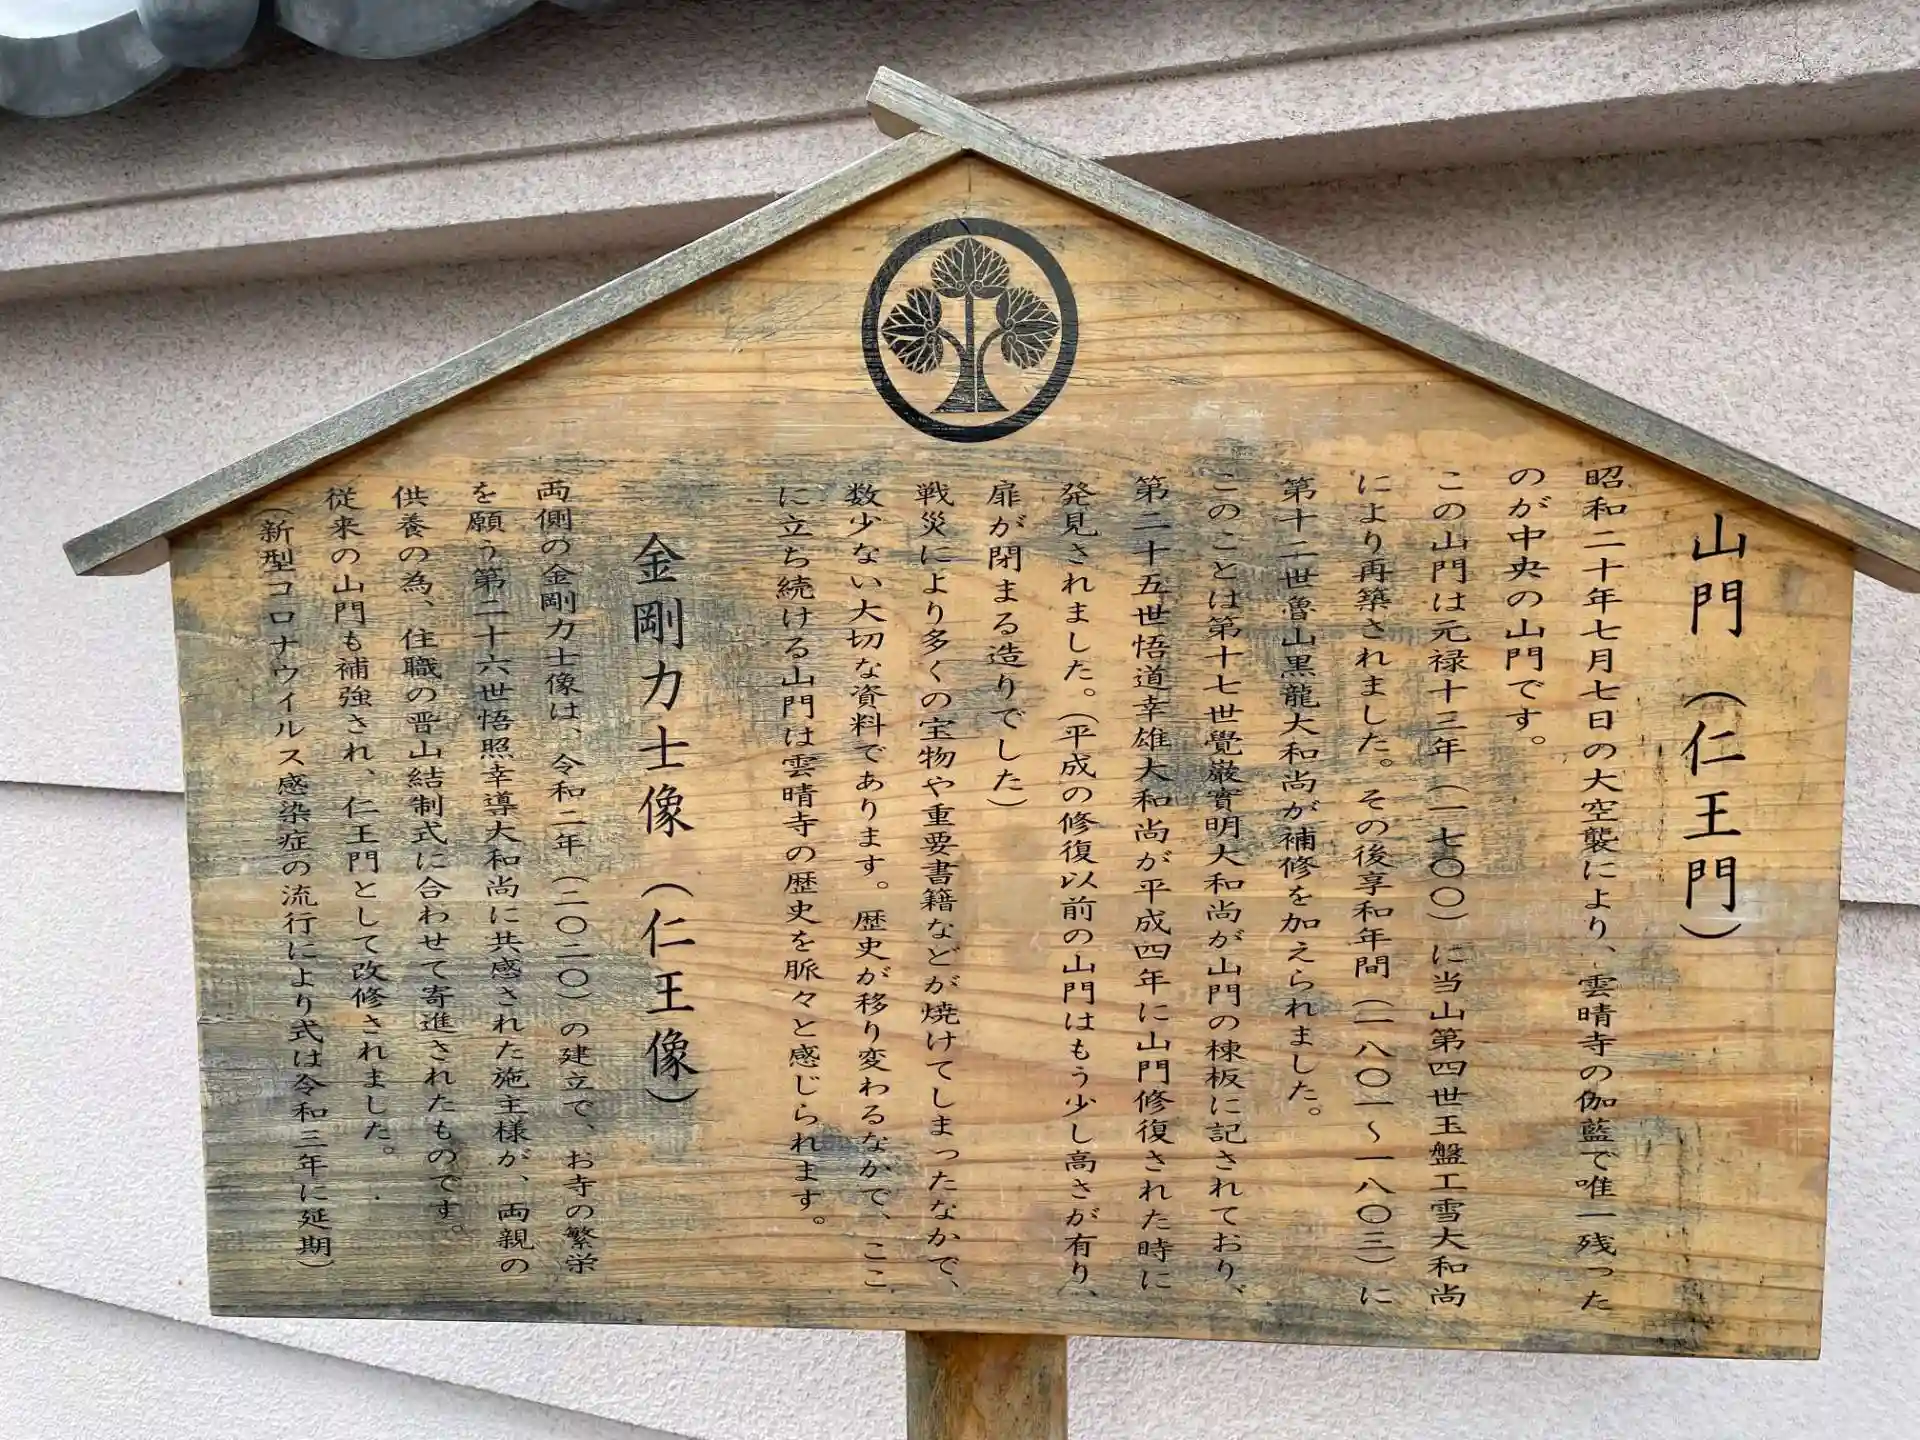 山門（仁王門）
昭和二十年七月七日の大空襲により、雲晴寺の伽藍で唯一残った
のが中央の山門です。
この山門は元禄十三年（一七〇〇）に当山第四世玉盤工雪大和尚
により再築されました。その後享和年間（一八〇一～一八〇三）に
第十二世魯山黒龍大和尚が補修を加えられました。
このことは第十七世覺巌實明大和尚が山門の棟板に記されており、
第二十五世悟道幸雄大和尚が平成四年に山門修復された時に
発見されました。（平成の修復以前の山門はもう少し高さが有り、
扉が閉まる造りでした）
戦災により多くの宝物や重要書籍などが焼けてしまったなかで、
数少ない大切な資料であります。歴史が移り変わるなかで、ここ
に立ち続ける山門は雲晴寺の歴史を脈々と感じられます。
金剛力士像（仁王像）
両側の金剛力士像は、令和二年（二〇二〇）の建立で、お寺の繁栄
を願う第二十六世悟照幸導大和尚に共感された施主様が、両親の
供養の為、住職の晋山結制式に合わせて寄進されたものです。
従来の山門も補強され、仁王門として改修されました。
（新型コロナウィルス感染症の流行により式は令和三年に延期）